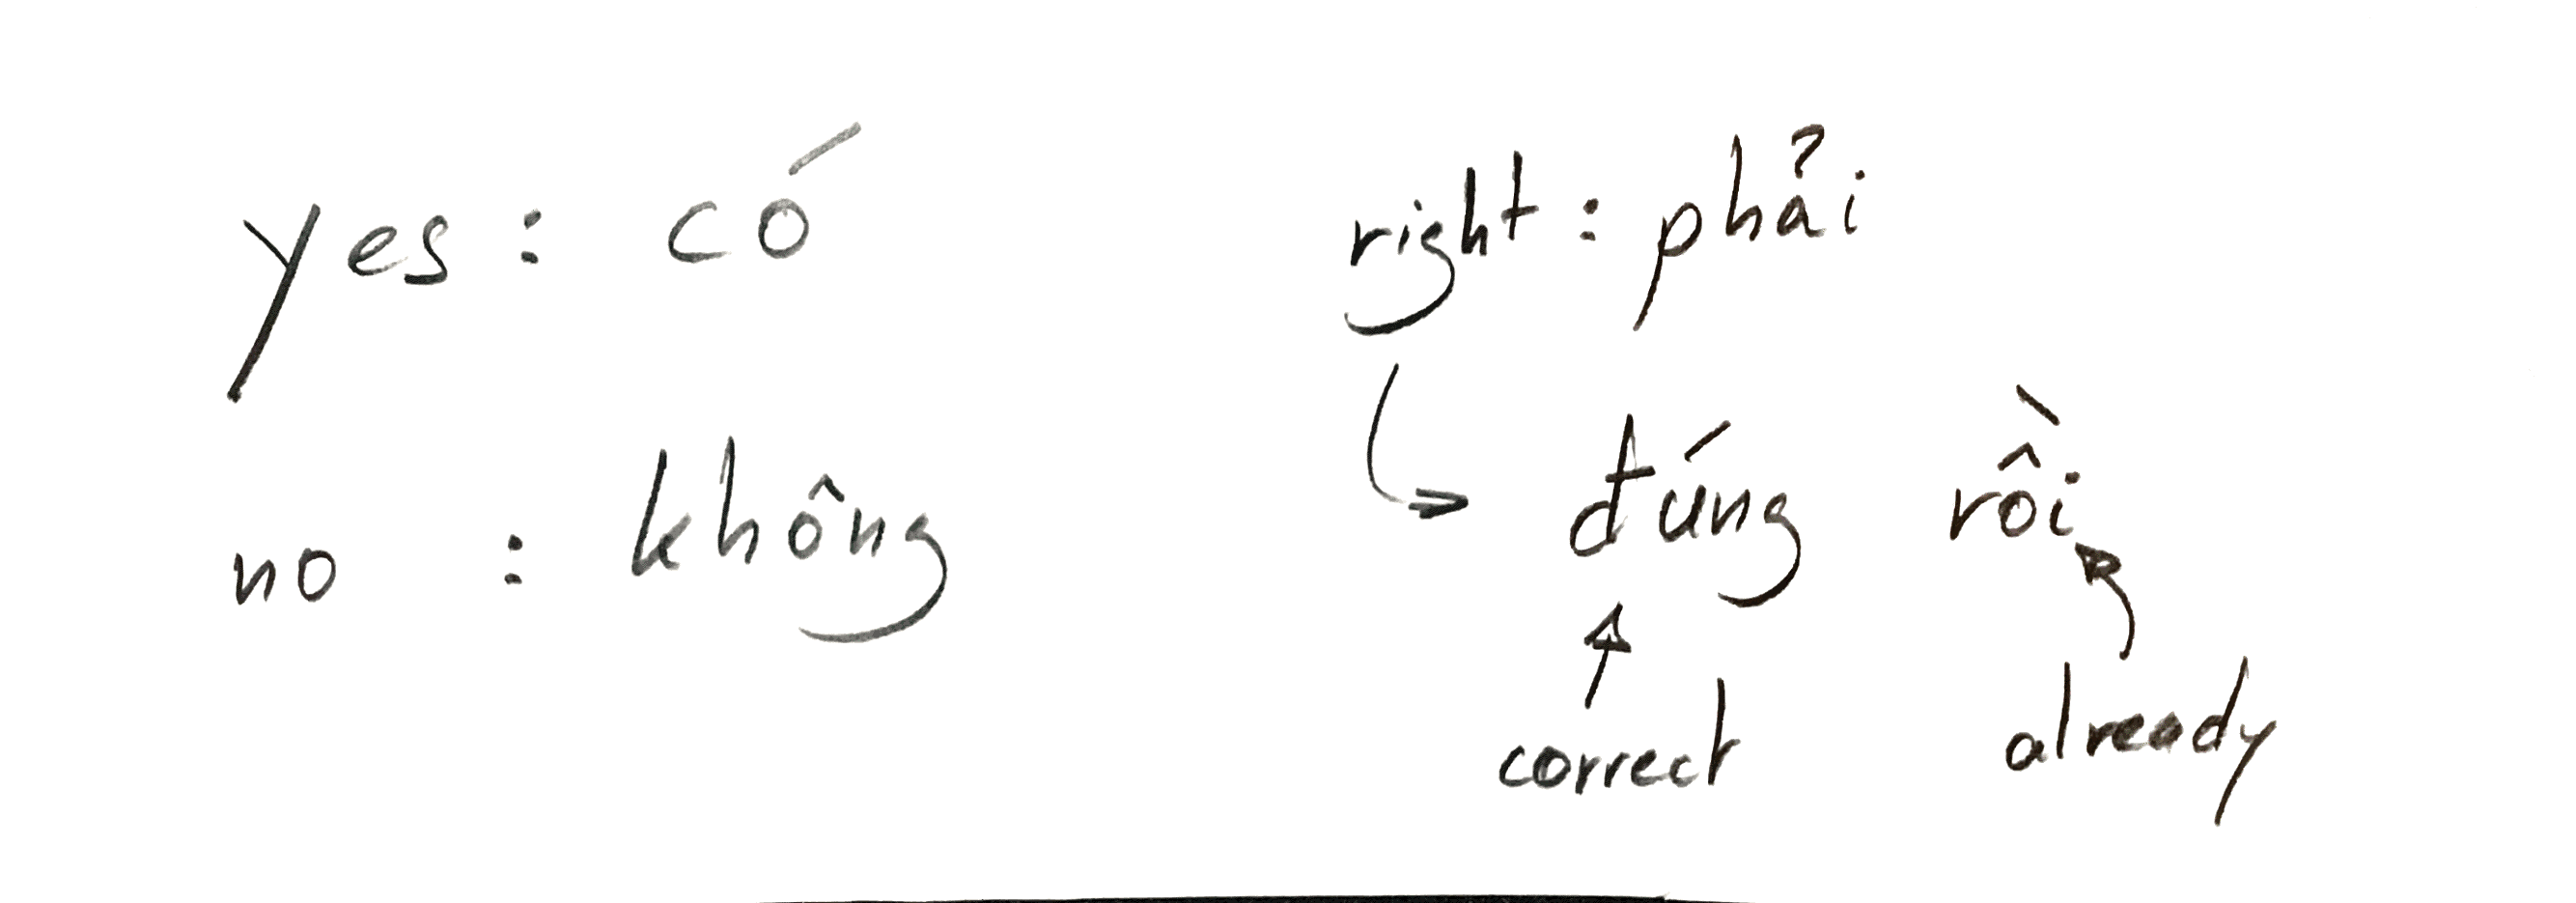 yes : có
no : không
right : phải
đúng rồi
correct already